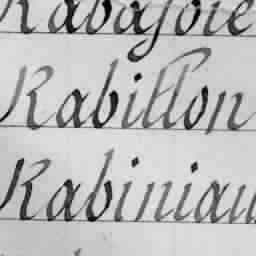 Rabajoie
Rabillon
Rabiniau